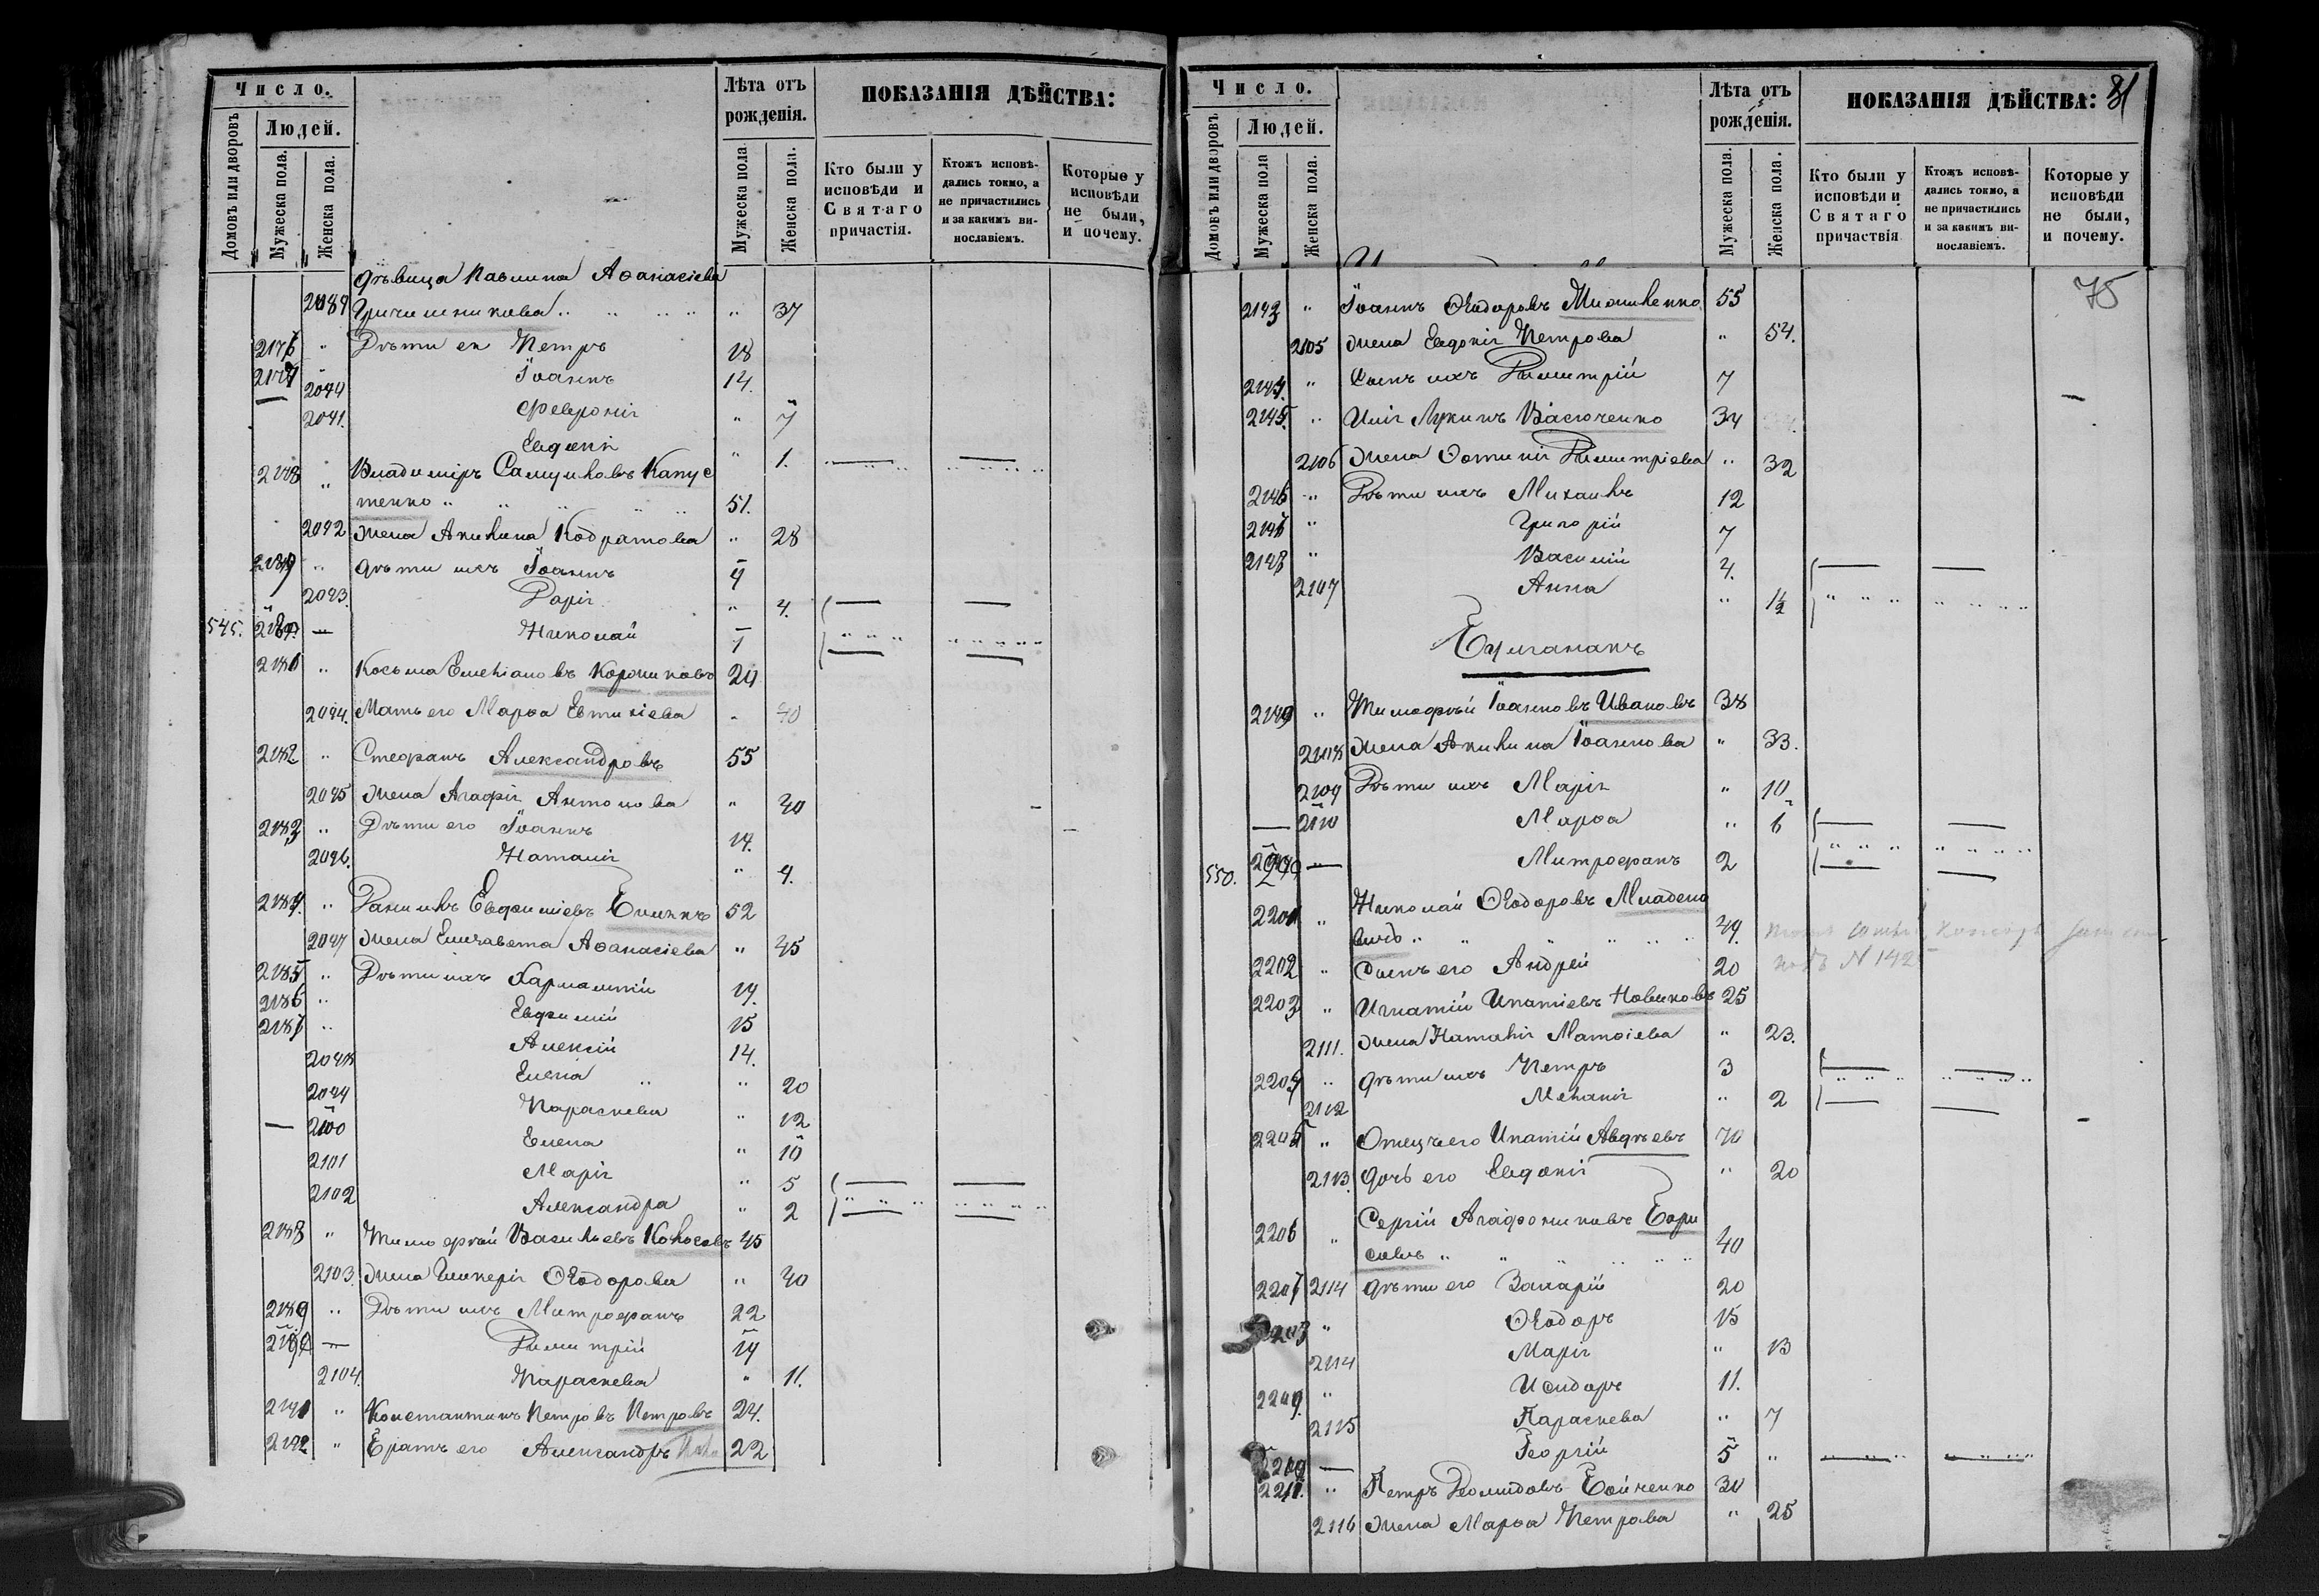 Число.
Лѣта отъ
рожденія.
ПОКАЗАНІЯ ДѢЙСТВА:
Домовъ или дворовъ
Людей.
Мужеска пола.
Женска пола.
Мужеска пола
Женска пола.
Кто были у
исповѣди и
Святаго
причастія.
Ктожъ исповѣ-
дались токмо, а
не причастились
и за какимъ ви-
нославіемъ.
Которые у
исповѣди
не были,
и почему.
дѣвица Павлина Аѳанасіева
2089 " 37
2176 " Дѣти ея Петръ 18
2177 Іоаннъ 14.
Февронія " 7
2091. Евдокія " 1.
2178 " Владиміръ Самуиловъ Капус
тенко " " 51.
2092 жена Акилина Кодратова " 28
2179 " дѣти ихъ Іоаннъ
2093. Дарія " 4.
545. Николай
2181 " Косьма Емеліановъ 24
2094. Мать его Марѳа Евтихіева " 40
2182 " Стефанъ Александровъ 55
2095 жена Агафія Антонова " 40
2183 " Дѣти его Іоаннъ
2096. Наталія " 4.
2184. " Даніилъ Евфиміевъ 52
2097 жена Елисавета Аѳанасіева " 45
2185 " Дѣти ихъ Харлампій 19.
2186 " Евфимій 15
2187 " Алексій 14.
2098 Елена " 20
2099 Параскева " 12
2100 Елена " 10
2101 Марія " 5
2102 Александра " 2
2188 " Тимофей Васильевъ 45
2103. жена Гликерія Ѳеодорова " 40
2189 " Дѣти ихъ Митрофанъ 22
2190 Димитрій 19
2104. Параскева " 11.
2191 " Константинъ Петровъ Петровъ 24.
2192 " Братъ его Александръ 22
Число.
Лѣта отъ
рожденія.
ПОКАЗАНІЯ ДѢЙСТВА: 81
Домовъ или дворовъ.
Людей.
Мужеска пола
Женска пола.
Мужеска пола.
Женска пола.
Кто были у
исповѣди и
Святаго
причаствія
Ктожъ исповѣ-
дались токмо, а
не причастились
и за какимъ ви-
нославіемъ.
Которые у
исповѣди
не были,
и почему.
75
2193 " Іоаннъ Ѳеодоровъ 55
2105 жена Евдокія Петрова " 54.
2194. " Сынъ ихъ Димитрій 7
2195. " Илія Лукинъ Васюченко 34
2106 жена Фотинія Димитріева " 32
2196 " Дѣти ихъ Михаилъ 12
2197 " Григорій 7
2198 " Василій 4.
2107 Анна " 1½
2199 " Тимофей Іоанновъ Ивановъ 38
2108 жена Акилина Іоаннова " 33.
2109 Дѣти ихъ Марія " 10
2110 Марѳа " 6
550. Митрофанъ 2
2201 " Николай Ѳеодоровъ Младено
вичъ " " 49.
2202 " Сынъ его Андрей 20
2203 " Игнатій Ипатіевъ Новиковъ 25
2111. жена Наталія Матѳіева " 23.
2204 " дѣти ихъ Петръ 3
2112 Меланія " 2
2205 " Отецъ его Ипатій Авдѣевъ 70
2113. дочь его Евдокія " 20
2206 " Сергій Агафониковъ Бори
совъ " " 40
2207 2114 дѣти его Захарій 20
Ѳеодоръ 15
2114 Марія " 13
2209. " Исидоръ 11.
2115 Параскева " 7
Георгій 5 "
2211. " Петръ Деомидовъ Бойченко 30
2116 жена Марѳа Петрова " 25